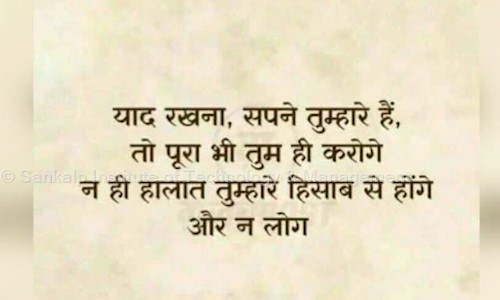 याद रखना, सपने तुम्हारे हैं,
तो पूरा भी तुम ही करोगे
© Sankalp Institute of Technology & Management
न ही हालात तुम्हारे हिसाब से होंगे
और न लोग